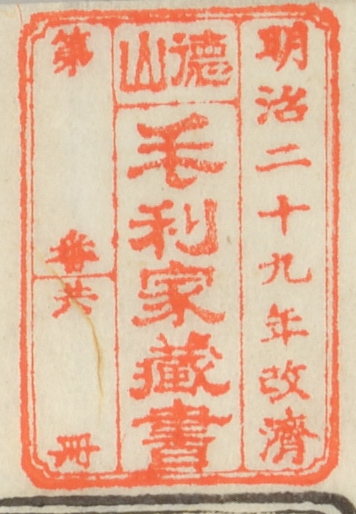 明治二十九年改濟
德山
毛利家藏書
第　番共　冊